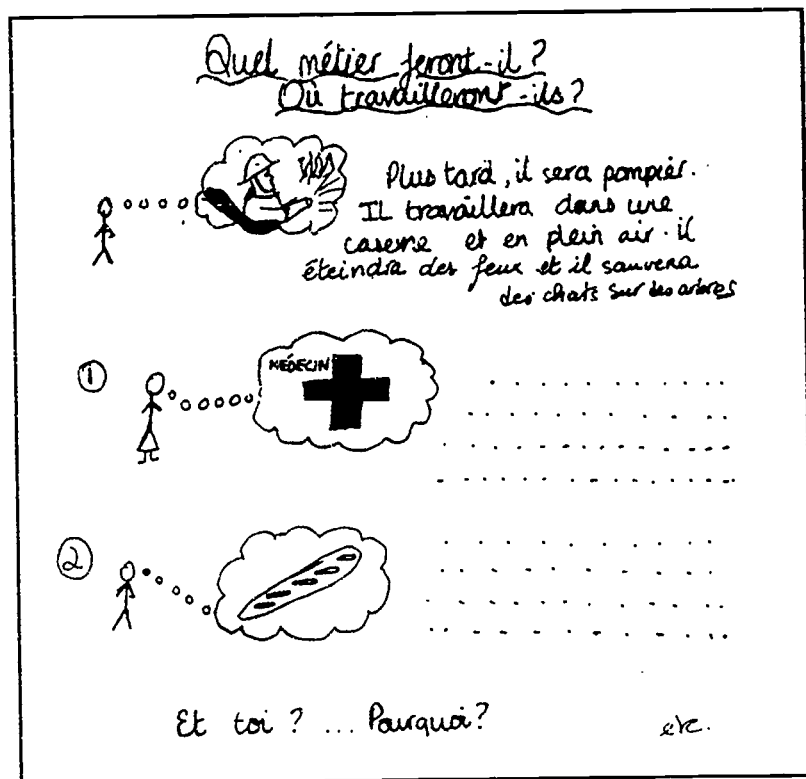 Quel métier feront-il?
Où travailleront-ils?
Plus tard, il sera pompier.
IL travaillera dans une
caserne et en plein air. il
éteindra des feux et il sauvera
des chats sur des arbres
1
MÉDECIN
2
Et toi? ... Pourquoi? etc.